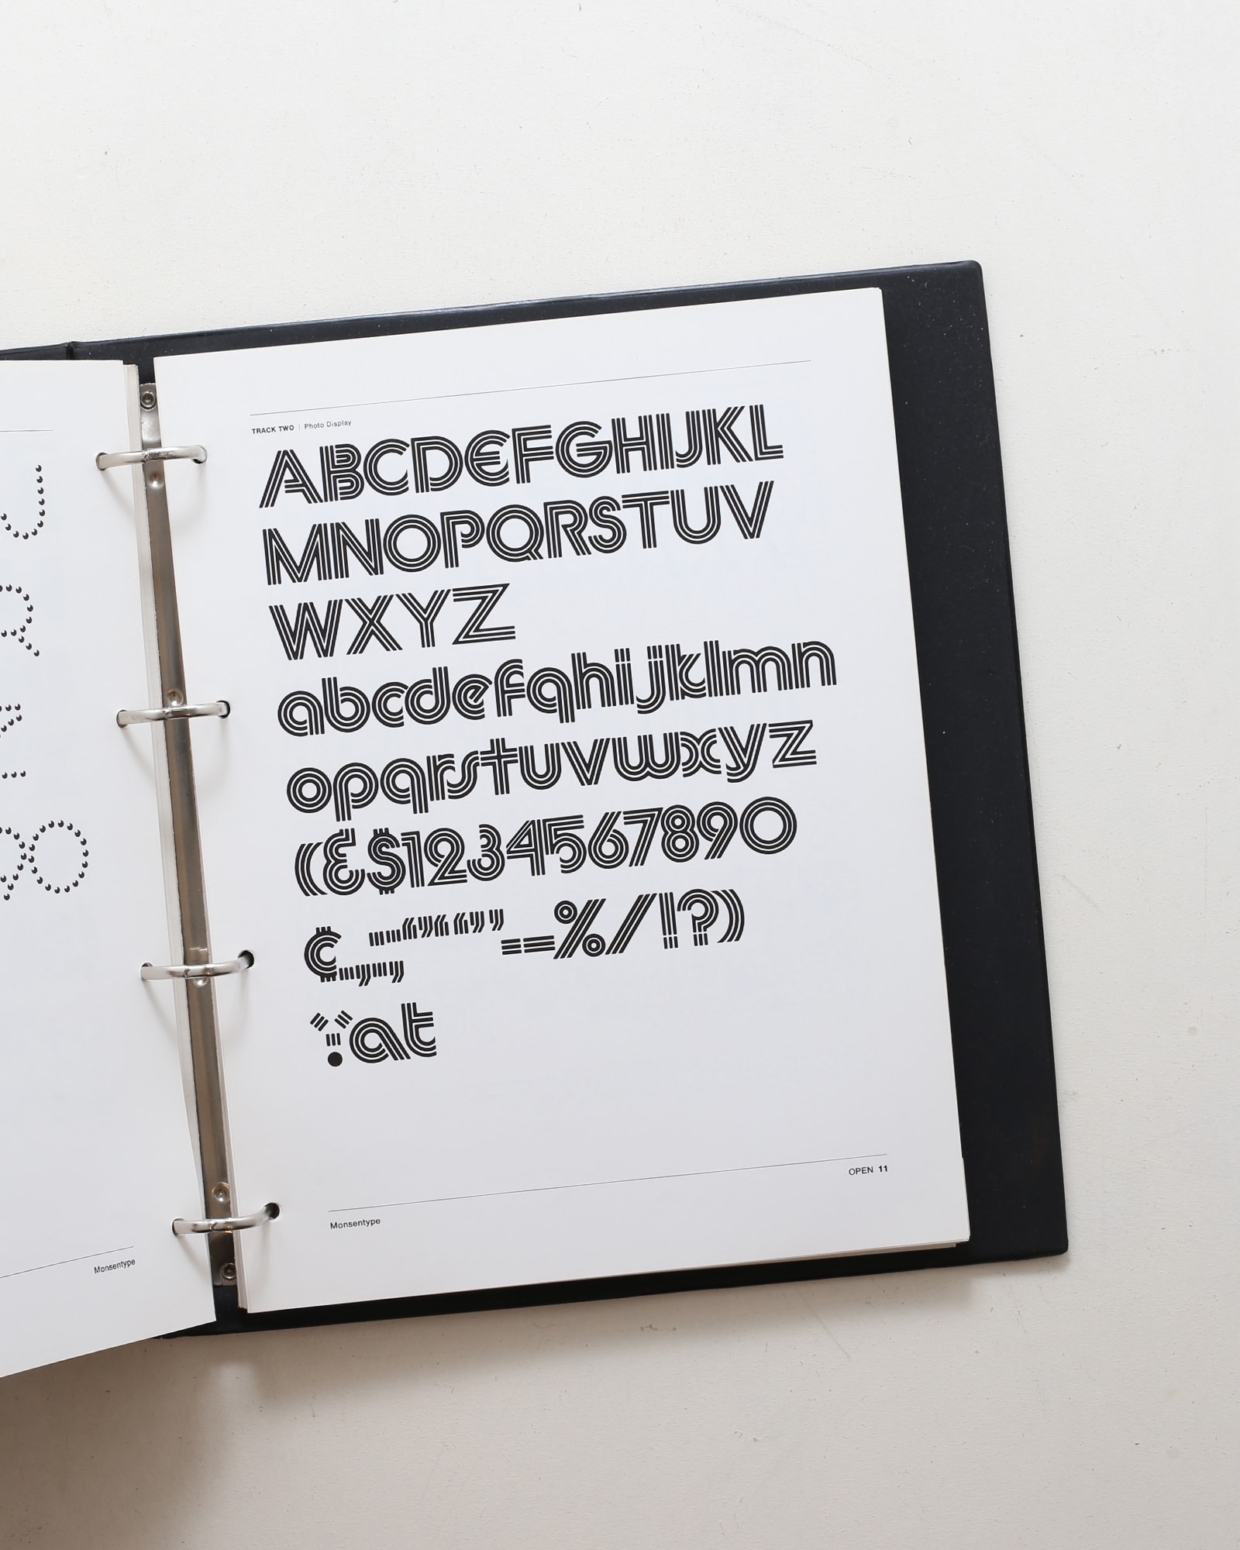 TRACK TWO | Photo Display
ABCDEFGHIJKL
MNOPQRSTUV
WXYZ
abcdefghijklmn
opqrstuvwxyz
(&$1234567890
%/!?)
at
OPEN 11
Monsentype
Monsentype